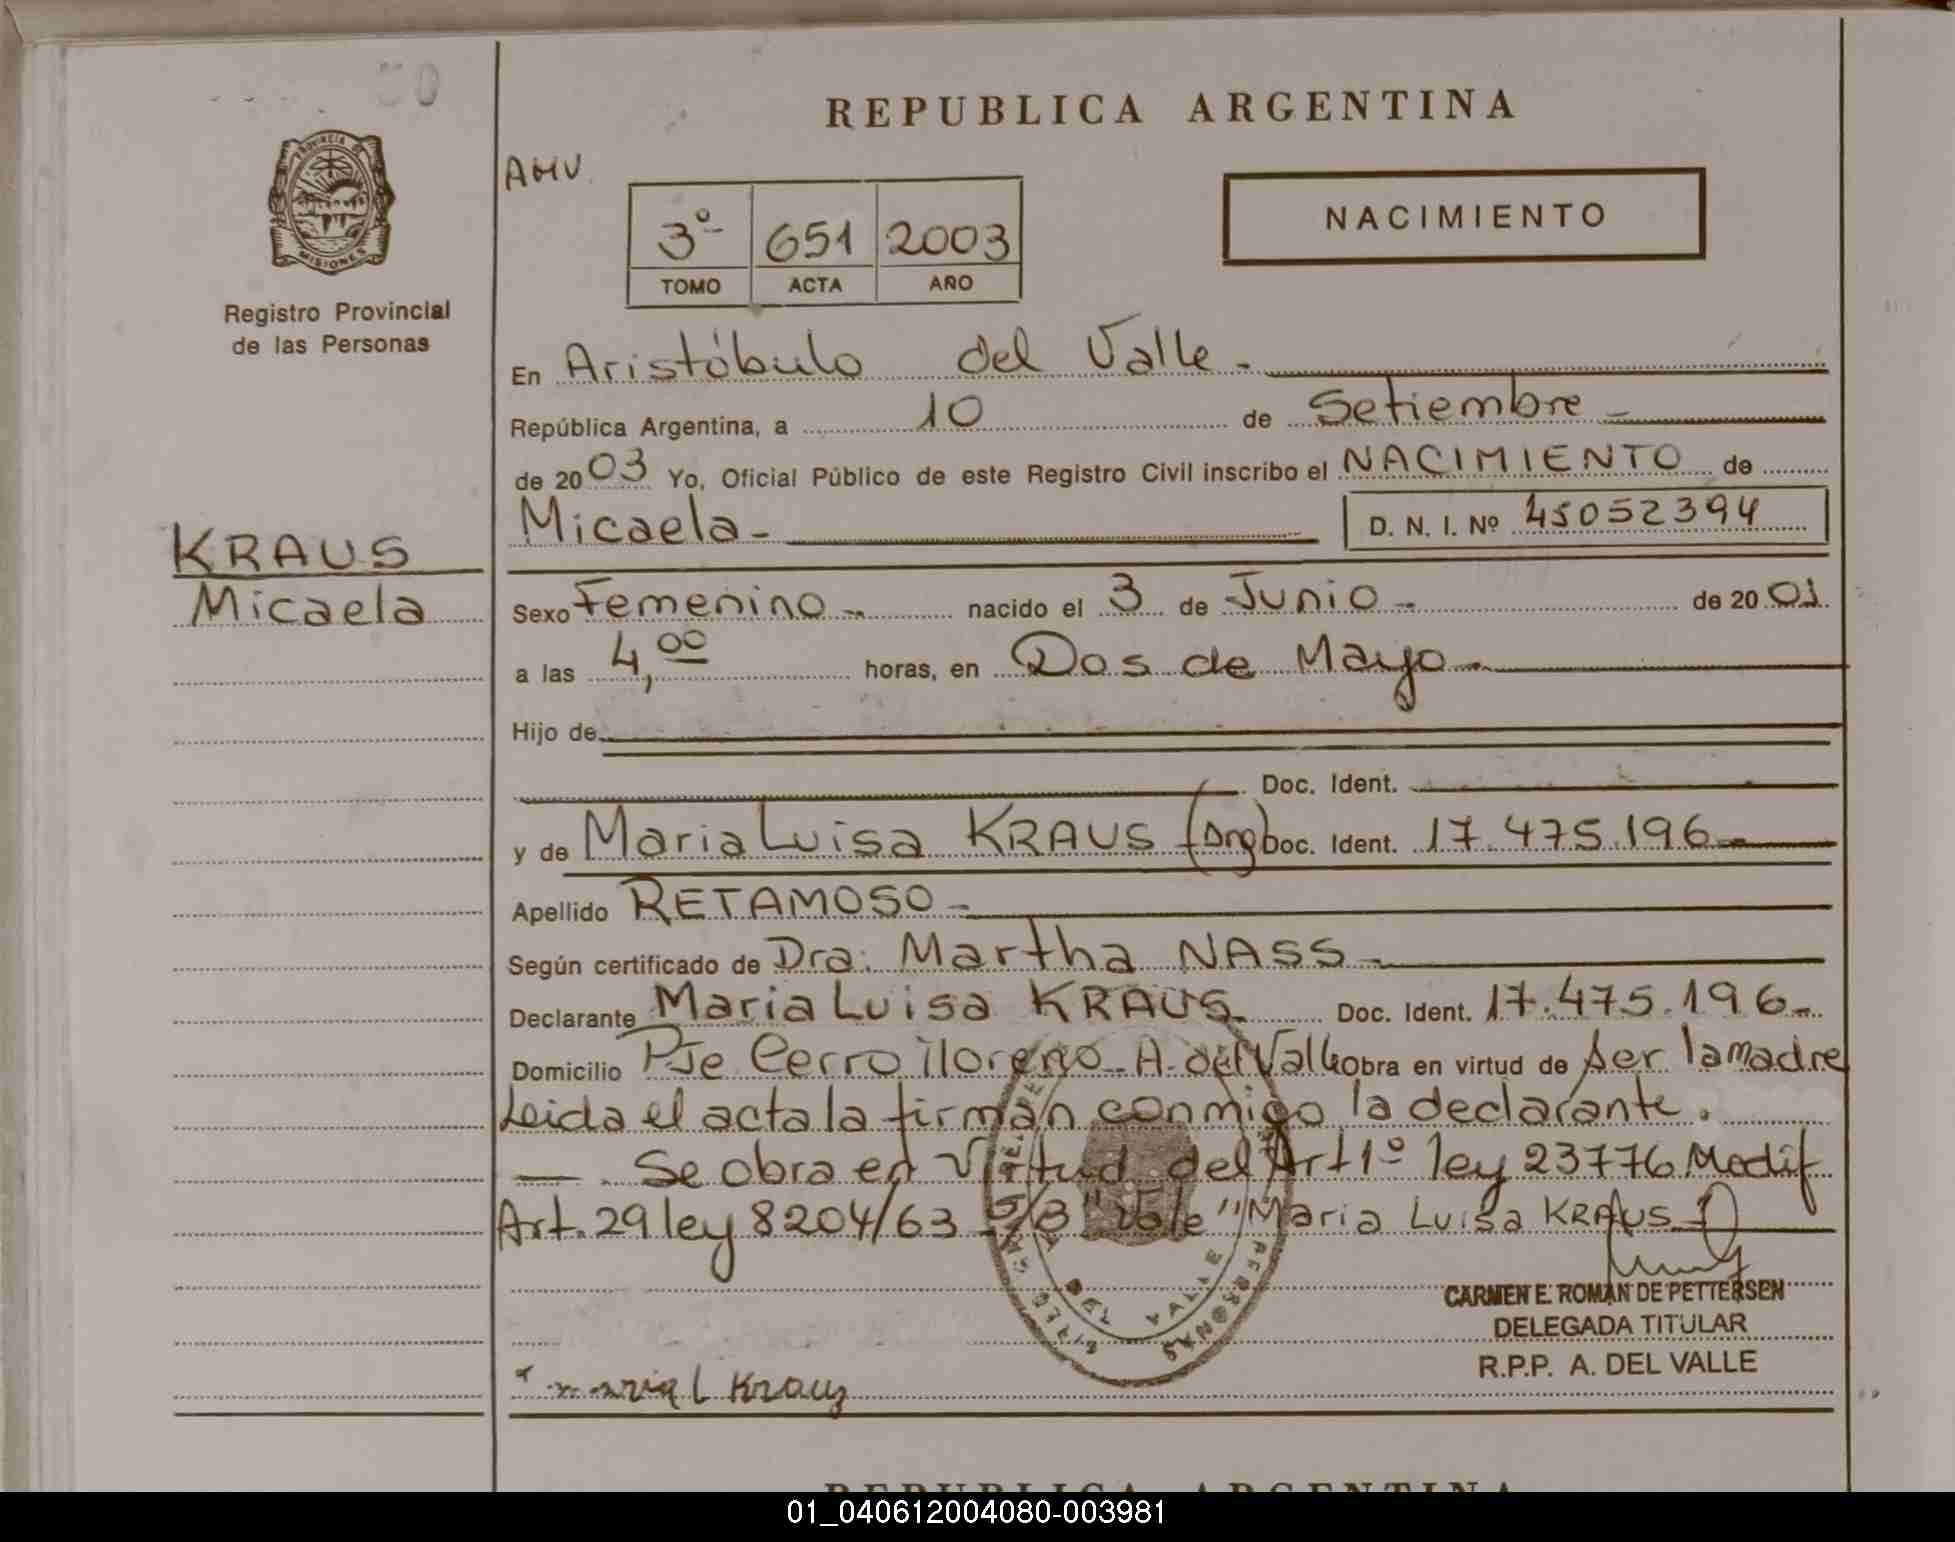 REPUBLICA ARGENTINA
PROVINCIA DE
MISIONES
Registro Provincial
de las Personas
AHV
3º 651 2003
TOMO ACTA AÑO
NACIMIENTO
En Aristóbulo del Valle.-
República Argentina, a 10 de Setiembre -
de 2003 Yo, Oficial Público de este Registro Civil inscribo el NACIMIENTO de
Micaela- D. N. I. Nº 45052394
KRAUS
Micaela
Sexo Femenino.- nacido el 3 de Junio.- de 2001.
a las 4,00 horas, en Dos de Mayo.-
Hijo de
Doc. Ident.
y de Maria Luisa KRAUS (Arg) Doc. Ident. 17.475.196.-
Apellido RETAMOSO.-
Según certificado de Dra. Martha NASS.-
Declarante Maria Luisa KRAUS. Doc. Ident. 17.475.196.-
Domicilio Pje Cerro Moreno - A. del Valle obra en virtud de ser la madre
Leida el acta la firman conmigo la declarante.
—. Se obra en Virtud del Art 1º ley 23776 Modif
Art. 29 ley 8204/63 - S/B "Vale" "Maria Luisa KRAUS
CARMEN E. ROMAN DE PETTERSEN
DELEGADA TITULAR
R.P.P. A. DEL VALLE
maria L Krauz
REPUBLICA ARGENTINA
01_040612004080-003981